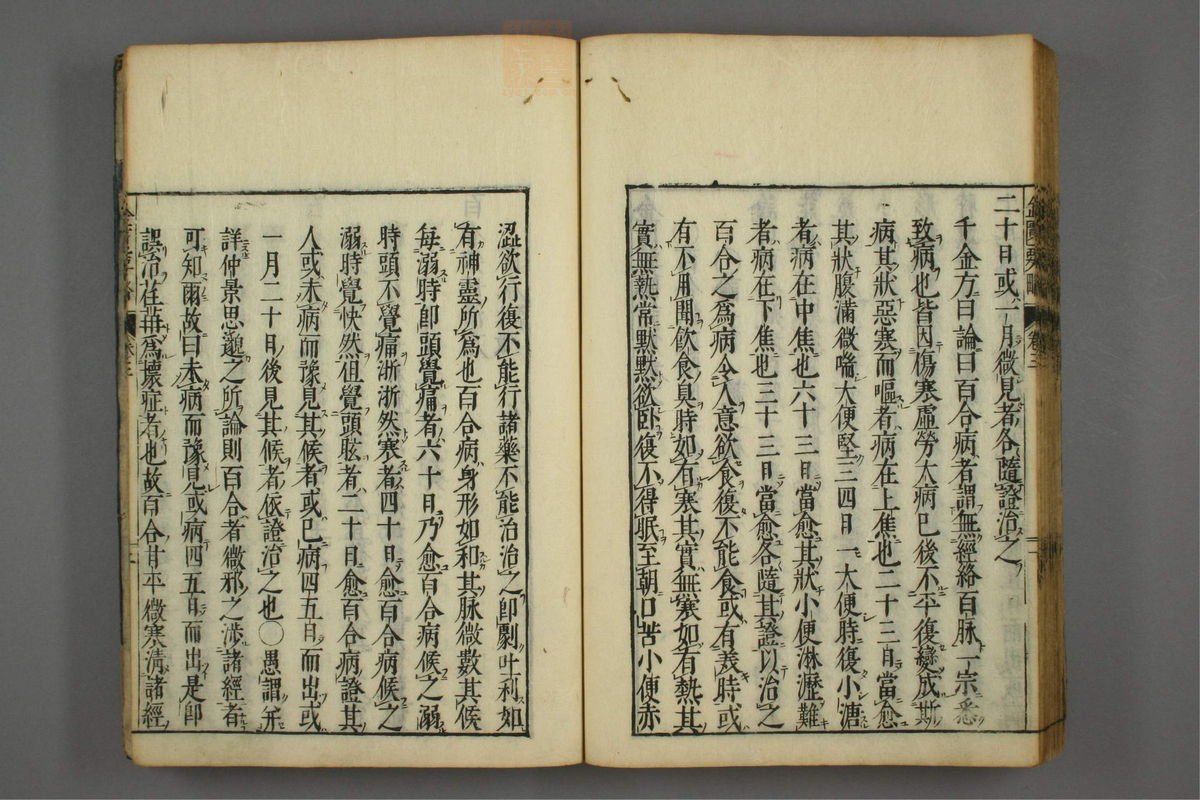 二十日或一月微見者各隨證治之
千金方曰論曰百合病者謂無經絡百脉一宗悉
致病也皆因傷寒虛勞大病已後不平復變成斯
病其狀惡寒而嘔者病在上焦也二十三日當愈
其狀腹滿微喘大便堅三四日一大便時復小溏
者病在中焦也六十三日當愈其狀小便淋瀝難
者病在下焦也三十三日當愈各隨其證以治之
百合之爲病令人意欲食復不能食或有美時或
有不用聞飲食臭時如有寒其實無寒如有熱其
實無熱常默默欲卧復不得眠至朝口苦小便赤
澁欲行復不能行諸藥不能治治之即劇吐利如
有神靈所爲也百合病身形如和其脉微數其候
每溺時即頭覺痛者六十日乃愈百合病候之溺
時頭不覺痛淅淅然寒者四十日愈百合病候之
溺時覺快然但覺頭眩者二十日愈百合病證其
人或未病而豫見其候者或已病四五日而出或
一月二十日後見其候者依證治之也〇愚謂并
詳仲景思邈之所論則百合者微邪之涉諸經者
可知爾故曰未病而豫見或病四五日而出是即
誤治荏苒爲壞症者也故百合甘平微寒清諸經